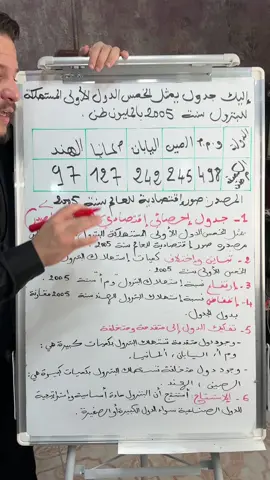 إليك جدول يمثل الخمس الدول الأولى المستهلكة
للبترول سنة 2005 بالمليون طن.
الدول و.م.أ الصين اليابان ألمانيا الهند
498 245 242 127 97
المصدر: صور إقتصادية للعالم سنة 2005
1- جدول إحصائي إقتصادي
يمثل الخمس الدول الأولى المستهلكة للبترول
مصدره صور إقتصادية للعالم سنة 2005
2- تباين وإختلاف كميات إستهلاك
الخمس الأولى سنة 2005.
3- إرتفاع نسبة إستهلاك البترول و م أ سنة 2005.
4- إنخفاض نسبة إستهلاك البترول الهند سنة 2005 مقارنة
بدول الجدول.
5- تفكيك الدول إلى متقدمة ومتخلفة
- وجود دول متقدمة تستهلك البترول بكميات كبيرة هي:
و م أ، اليابان، ألمانيا.
- وجود دول متخلفة تستهلك البترول بكميات كبيرة هي:
الصين، الهند
6- الإستنتاج: أستنتج أن البترول مادة أساسية وإستراتيجية
للدول الصناعية سواء الدول الكبيرة أو الصغيرة.